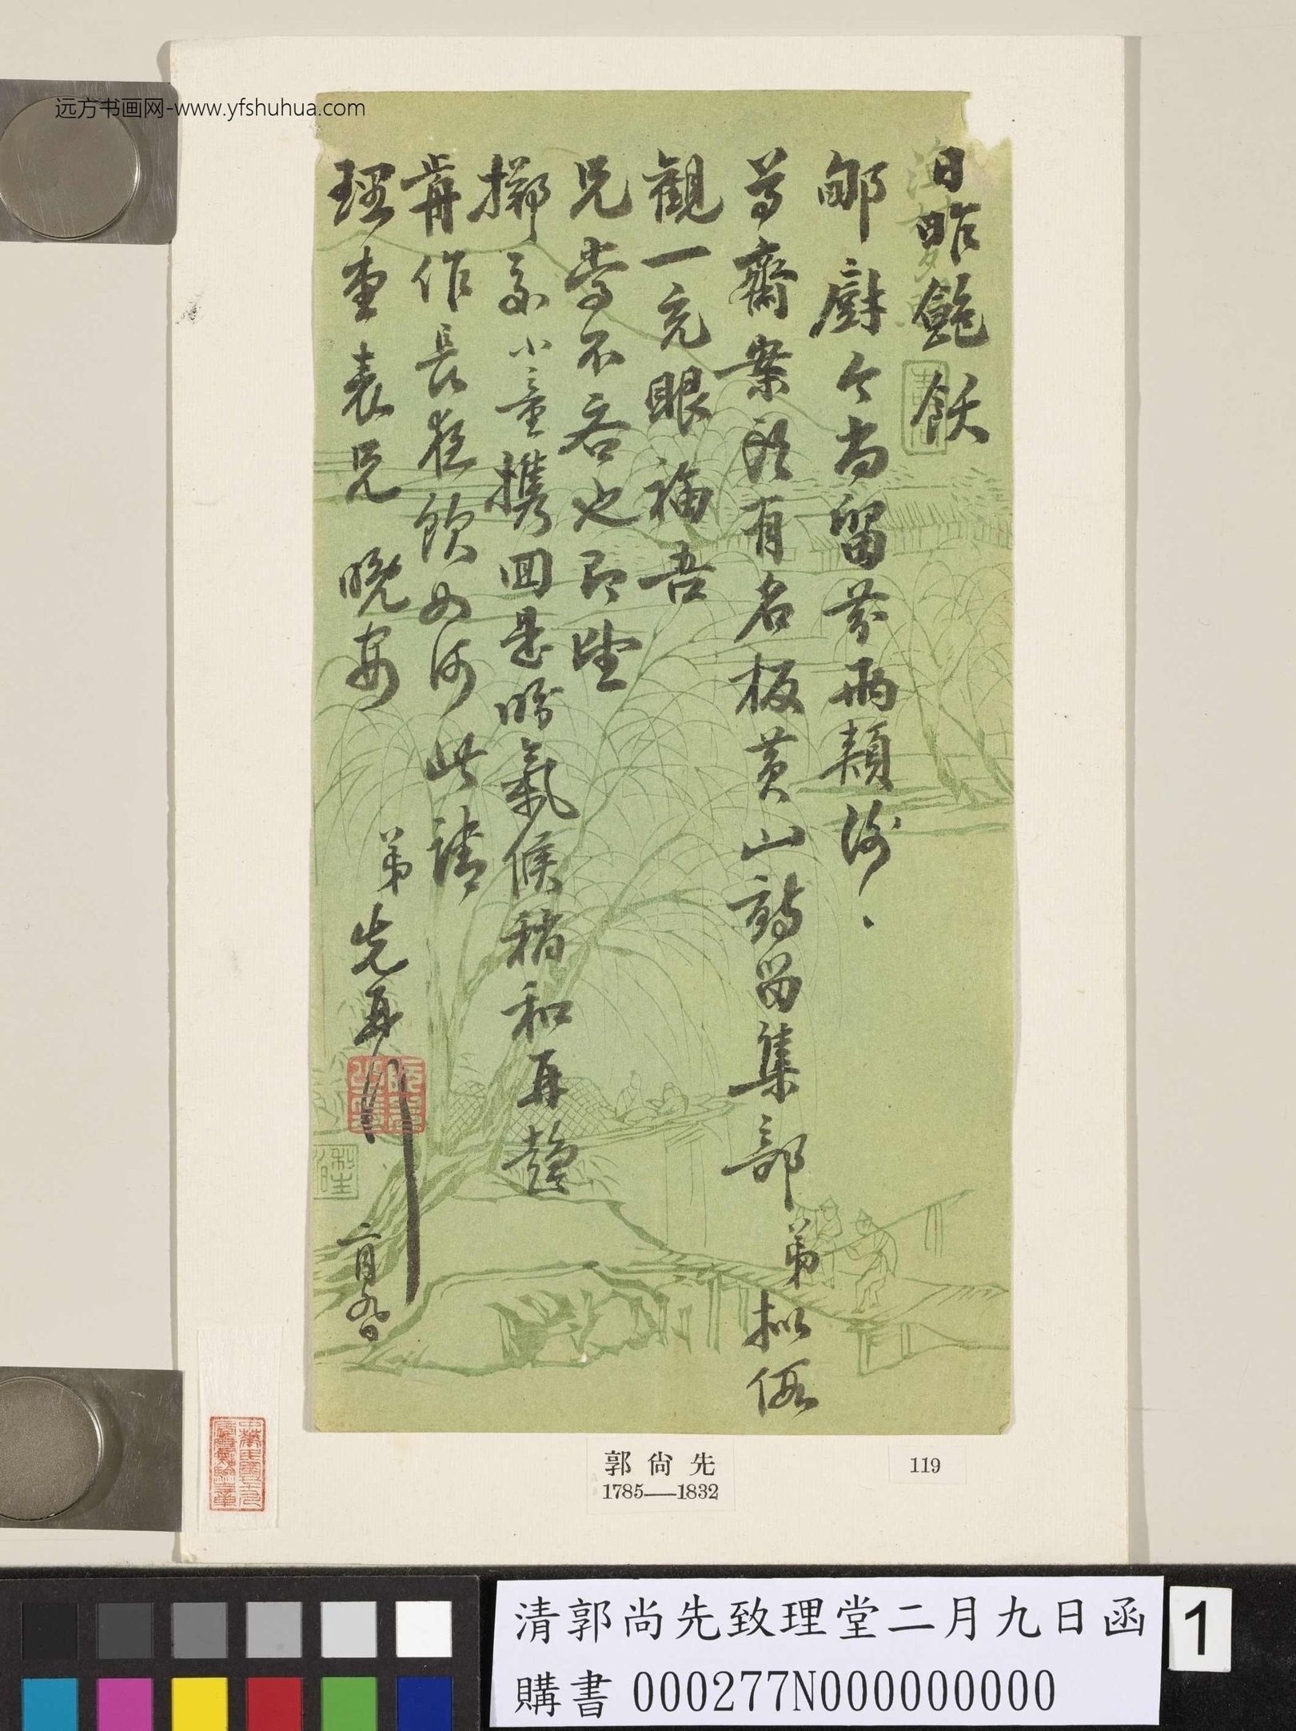 远方书画网-www.yfshuhua.com
日昨飽飫
郇廚今尚留芬兩頰謝、
尊齋案頭有名板黄山詩留集部弟擬假
觀一充眼福吾
兄當不吝也即望
擲交小童攜回是時氣候稍和再趨
齋作長夜飲如何此請
理堂表兄 晚安
弟先再
二月九日
郭尙先
1785—1832
119
清郭尚先致理堂二月九日函
購書 000277N000000000
1